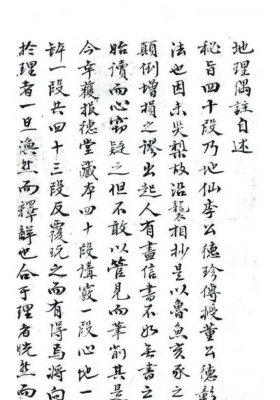 地理隅註自述
秘旨四十段乃地仙李公德珍傳授董公德彰
法也因未災梨故沿襲相抄是以魯魚亥豕之
顛倒增損之謬出起人有盡信書不如無書之
始讀而心竊疑之但不敢以管見而筆削其是
今幸獲報德堂藏本四十段講竅一段心地一
註一段共四十三段反覆玩之而有得焉將向
於理者一旦渙然而釋詳也合于理者恍然而